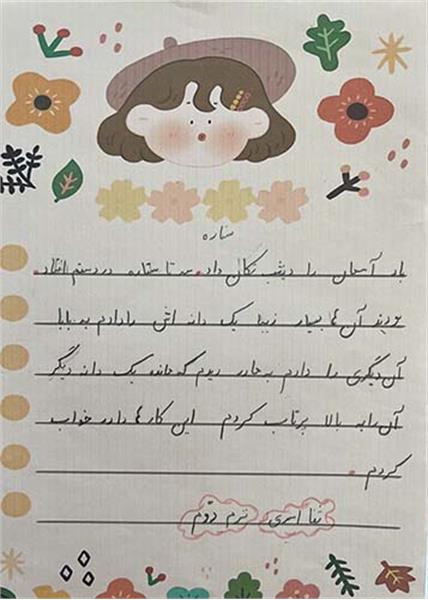 ستاره
باد آسمان را دیشب تکان داد. سه تا ستاره در دستم افتاد.
بودند آن ها بسیار زیبا یک دانه اش را دادم به بابا
آن دیگری را دادم به مادر دیدم که مانده یک دانه دیگر
آن را به بالا پرتاب کردم این کار ها را در خواب
کردم.
ترم دوم